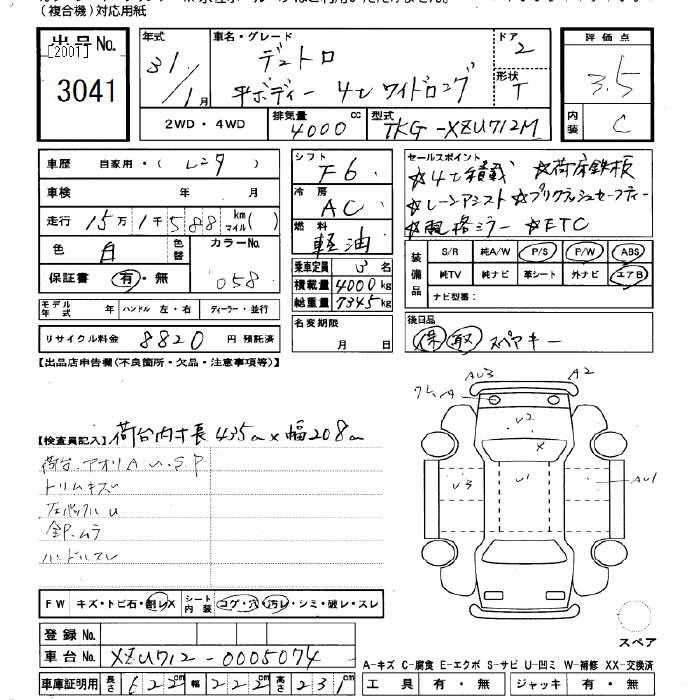 (複合機)対応用紙
出品No. [2001] 3041
年式 31/1月
車名・グレード デュトロ
平ボディー 4t ワイドロング
ドア 2
形状 T
評価点 3.5
内装 C
2WD・4WD
排気量 4000cc
型式 TKG-XZU712M
車歴 自家用・(レンタ)
車検 年 月
走行 15万1千588km マイル( )
色 白 色替 カラーNo. 058
保証書 有・無
モデル年式 年 ハンドル 左・右 ディーラー・並行
リサイクル料金 8820 円 預託済
シフト F6
冷房 AC
燃料 軽油
乗車定員 3名
積載量 4000kg
総重量 7345kg
名変期限 月 日
セールスポイント
☆4t積載 ☆荷床鉄板
☆レーンアシスト ☆プリクラッシュセーフティー
☆電格ミラー ☆ETC
装備品 S/R 純A/W P/S P/W ABS
純TV 純ナビ 革シート 外ナビ エアB
ナビ型番:
後日品
保 取 スペアキー
【出品店申告欄(不良箇所・欠品・注意事項等)】
【検査員記入】 荷台内寸長435cm×幅208cm
荷台.アオリA.U.S.P
トリムキズ
左バックルU
全P.ムラ
ハンドルスレ
AU3 A2
A
U2
X
U3 U1 AU1
スペア
FW キズ・トビ石・割レX シート内装 コゲ・穴・汚レ・シミ・破レ・スレ
登録No.
車台No. XZU712-0005074
車庫証明用 長さ 622cm 幅 222cm 高さ 231cm
A-キズ C-腐食 E-エクボ S-サビ U-凹ミ W-補修 XX-交換済
工具 有・無 ジャッキ 有・無